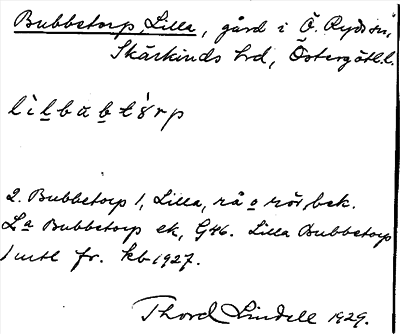 Bubbetorp, Lilla, gård i Ö. Ryds sn,
Skärkinds hd, Östergötl. l.
lìlbabtórp
2. Bubbetorp 1, Lilla, rå o rör, bek.
La Bubbetorp ek, G46. Lilla Bubbetorp
1 mtl fr. kb 1927.
Thord Lindell 1929.